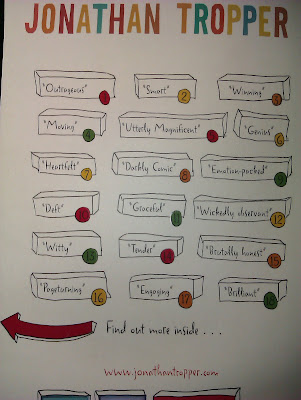 JONATHAN TROPPER
"Outrageous" 1 "Smart" 2 "Winning" 3
"Moving" 4 "Utterly Magnificent" 5 "Genius" 6
"Heartfelt" 7 "Darkly Comic" 8 "Emotion-packed" 9
"Deft" 10 "Graceful" 11 "Wickedly observant" 12
"Witty" 13 "Tender" 14 "Brutally honest" 15
"Pageturning" 16 "Engaging" 17 "Brilliant" 18
Find out more inside . . .
www.jonathantropper.com